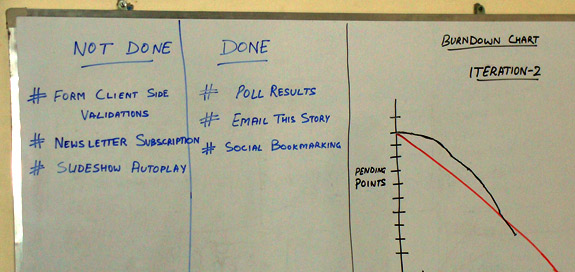 NOT DONE
# FORM CLIENT SIDE
VALIDATIONS
# NEWSLETTER SUBSCRIPTION
# SLIDESHOW AUTOPLAY
DONE
# POLL RESULTS
# EMAIL THIS STORY
# SOCIAL BOOKMARKING
BURNDOWN CHART
ITERATION-2
PENDING
POINTS